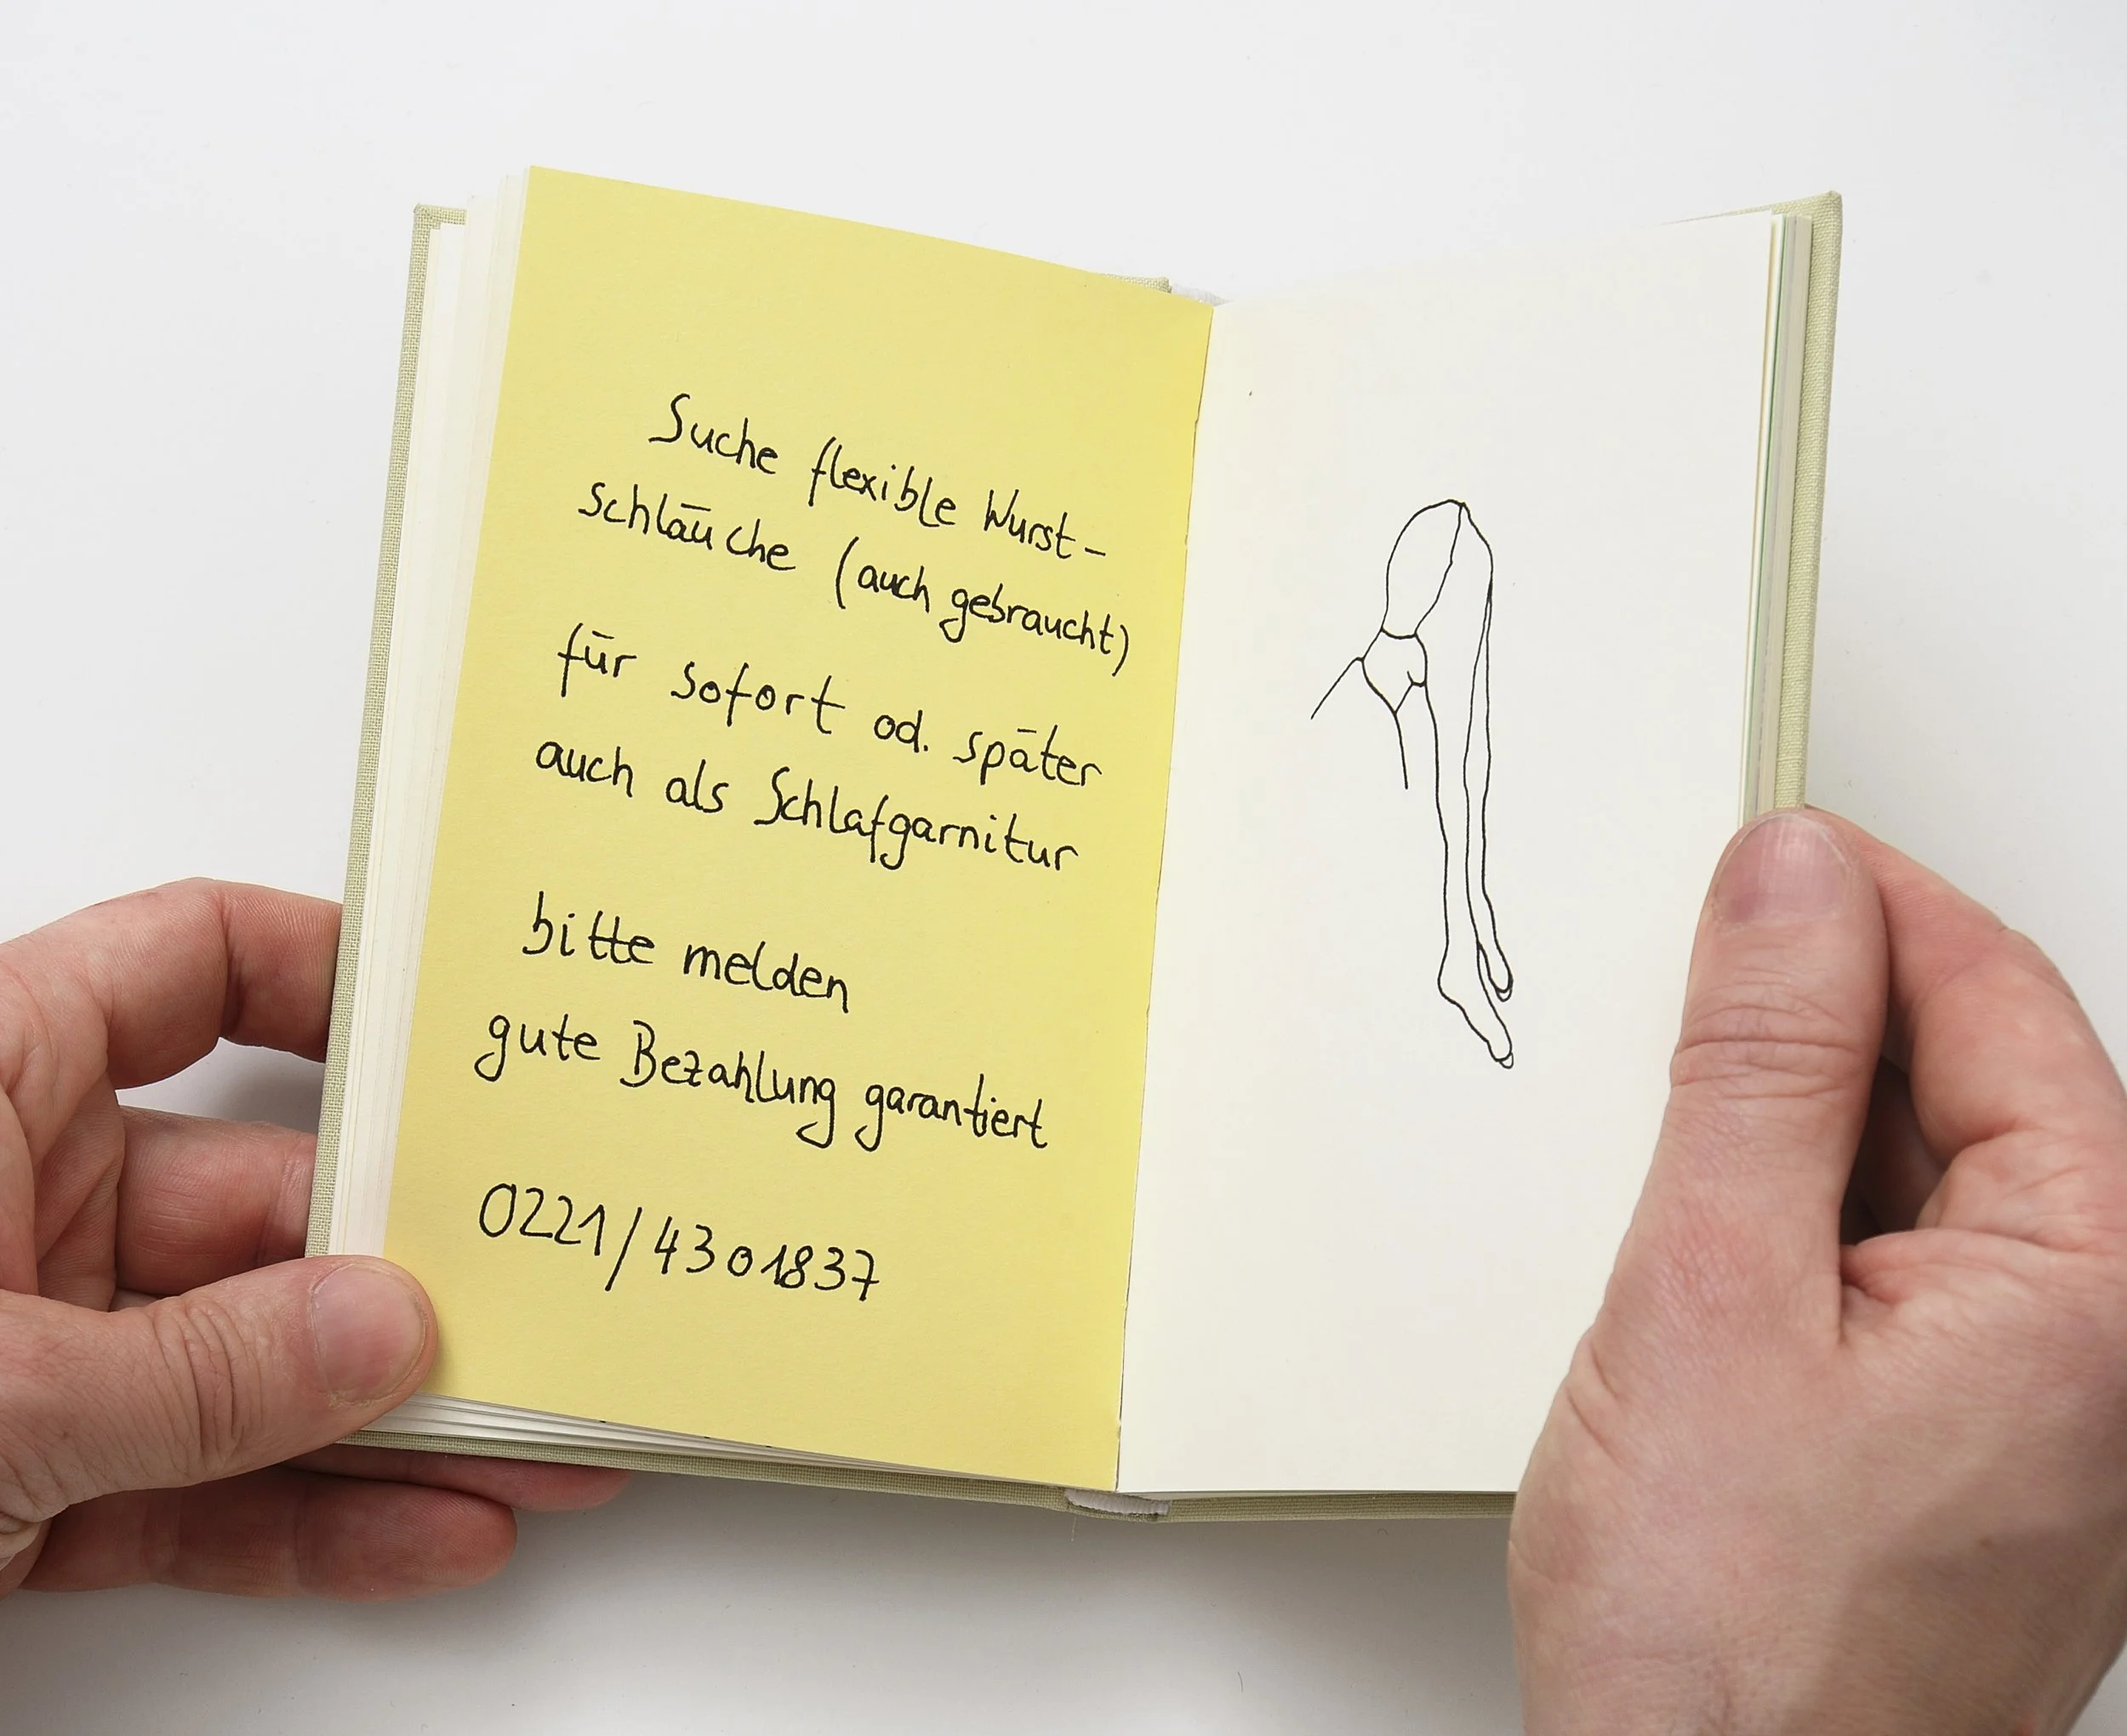 Suche flexible Wurst-
schläuche (auch gebraucht)
für sofort od. später
auch als Schlafgarnitur
bitte melden
gute Bezahlung garantiert
0221/4301837